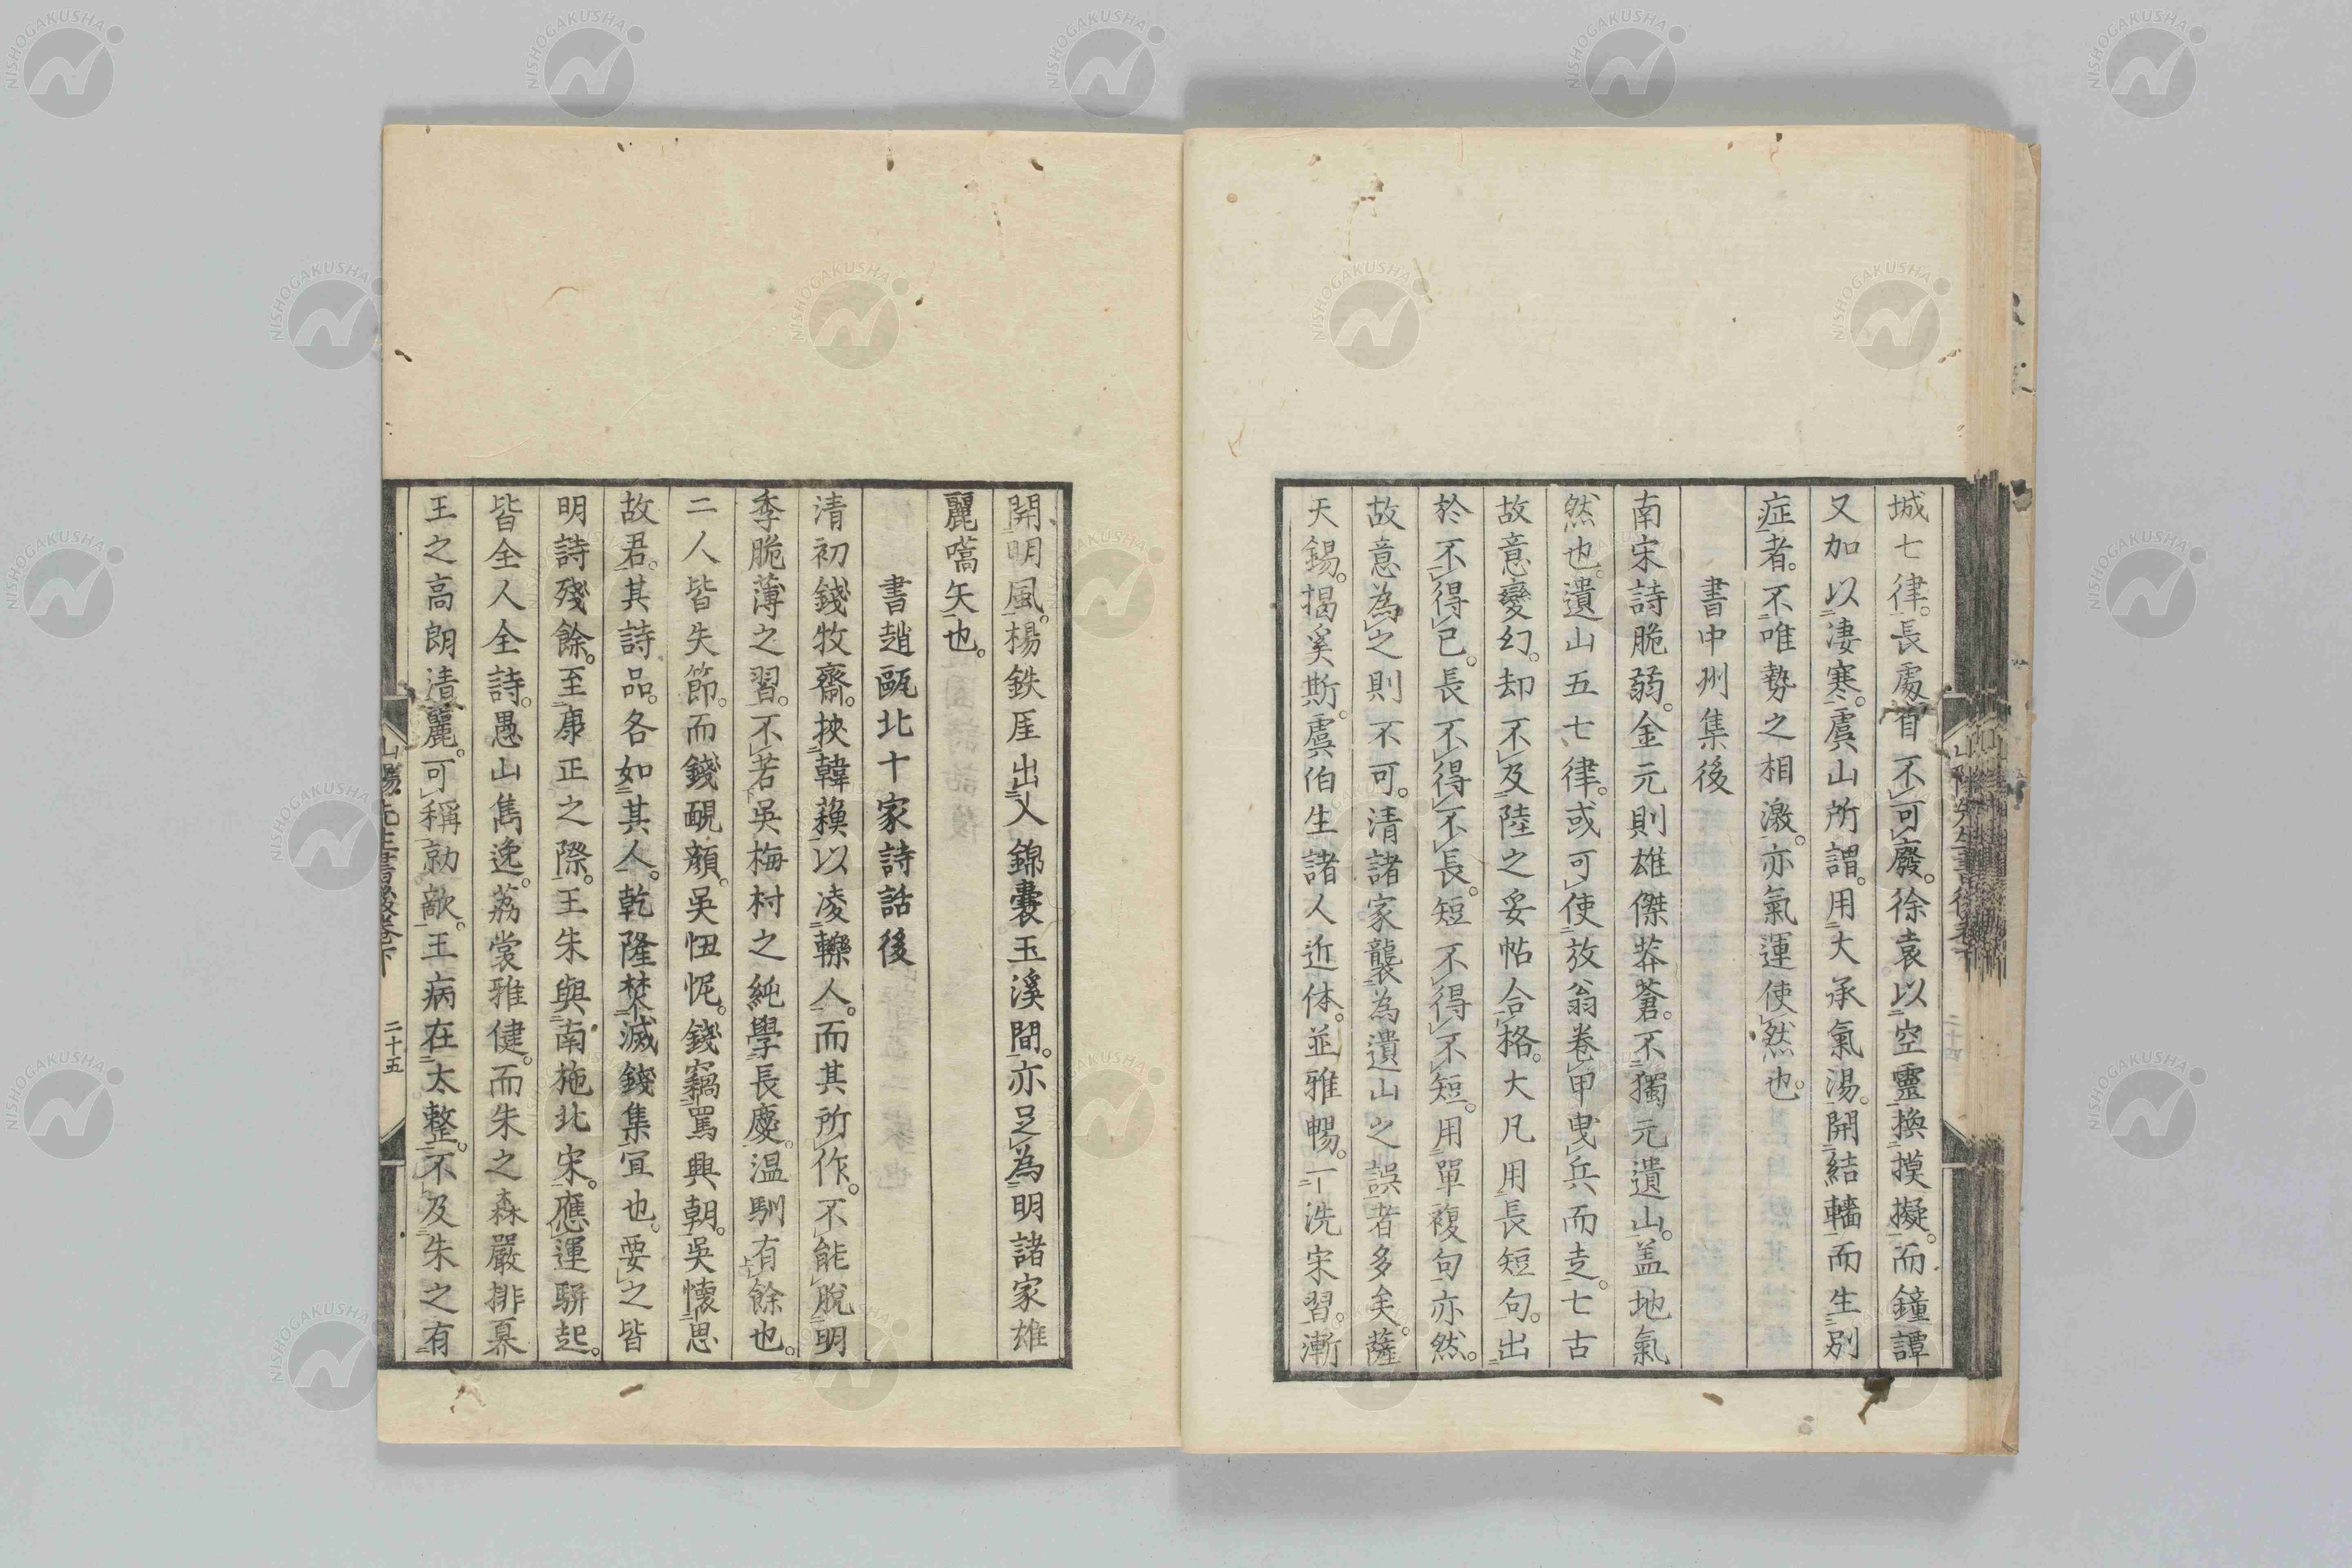 城七律。長處自不可廢。徐袁以空靈換摸擬。而鐘譚
又加以淒寒。虞山所謂。用大承氣湯。開結轖而生別
症者。不唯勢之相激。亦氣運使然也。
書中州集後
南宋詩脆弱。金元則雄傑莽蒼。不獨元遺山。盖地氣
然也。遺山五七律。或可使放翁卷甲曳兵而走。七古
故意變幻。却不及陸之妥帖合格。大凡用長短句。出
於不得已。長不得不長。短不得不短。用單複句亦然。
故意為之則不可。清諸家襲為遺山之誤者多矣。薩
天錫。揭奚斯。虞伯生諸人近体。並雅暢。一洗宋習。漸
開明風。楊鉄厓出入錦囊玉溪間。亦足為明諸家雄
麗嚆矢也。
書趙甌北十家詩話後
清初錢牧齋。挾韓蘓以凌轢人。而其所作。不能脫明
季脆薄之習。不若吳梅村之純學長慶。温馴有餘也。
二人皆失節。而錢靦顔。吳忸怩。錢竊罵興朝。吳懷思
故君。其詩品。各如其人。乾隆焚滅錢集宜也。要之皆
明詩殘餘。至康正之際。王朱與南施北宋。應運駢起。
皆全人全詩。愚山雋逸。荔裳雅健。而朱之森嚴排奡
王之高朗清麗。可稱勍敵。王病在太整。不及朱之有
山陽先生書後卷下
二十五